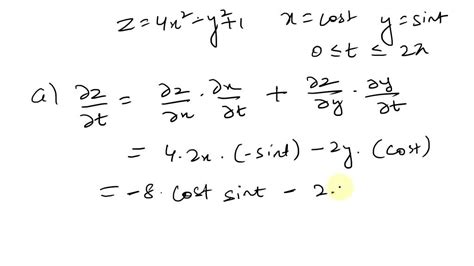 z = 4x² - y² + 1 x = cost y = sint
0 ≤ t ≤ 2π
a) ∂z/∂t = ∂z/∂x · ∂x/∂t + ∂z/∂y · ∂y/∂t
= 4·2x · (-sint) - 2y · (cost)
= -8 · cost sint - 2·